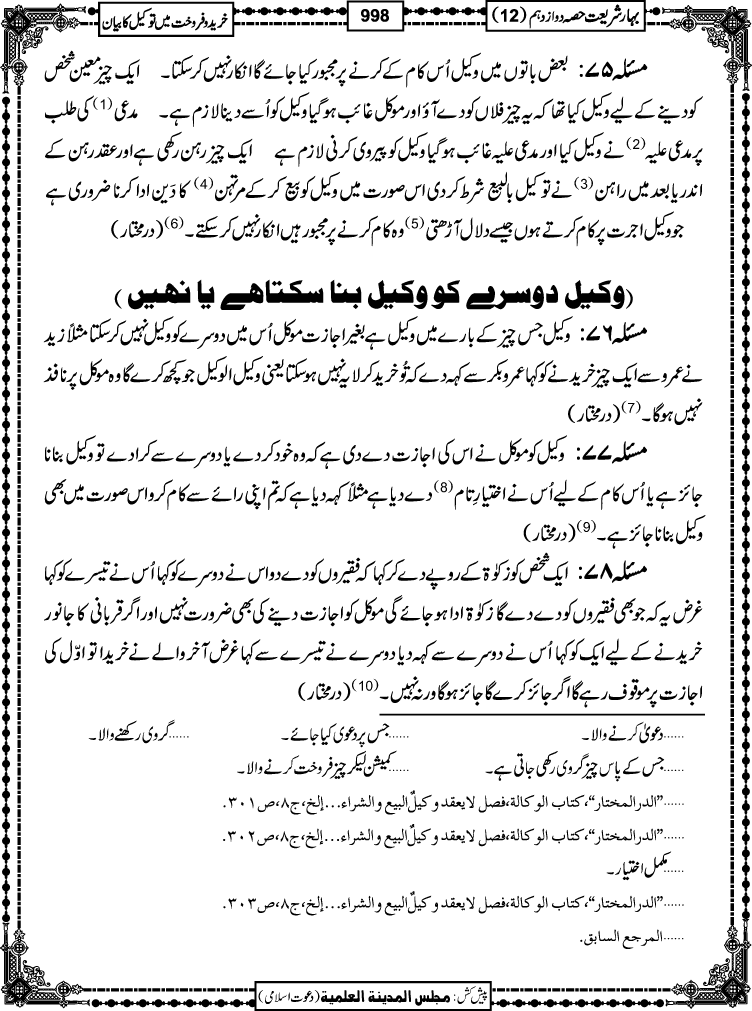 بہارِ شریعت حصہ دوازدہم (12)
998
خرید و فروخت میں توکیل کا بیان
مسئلہ ۷۵: بعض باتوں میں وکیل اُس کام کے کرنے پر مجبور کیا جائے گا انکار نہیں کر سکتا۔ ایک چیز معین شخص
کو دینے کے لیے وکیل کیا تھا کہ یہ چیز فلاں کو دے آؤ اور موکل غائب ہو گیا وکیل کو اُسے دینا لازم ہے۔ مدعی(1) کی طلب
پر مدعی علیہ(2) نے وکیل کیا اور مدعی علیہ غائب ہو گیا وکیل کو پیروی کرنی لازم ہے ایک چیز رہن رکھی ہے اور عقد رہن کے
اندر یا بعد میں راہن(3) نے توکیل بالبیع شرط کر دی اس صورت میں وکیل کو بیع کر کے مرتہن(4) کا دَین ادا کرنا ضروری ہے
جو وکیل اجرت پر کام کرتے ہوں جیسے دلال آڑھتی(5) وہ کام کرنے پر مجبور ہیں انکار نہیں کر سکتے۔(6) (درمختار)
(وکیل دوسرے کو وکیل بنا سکتاھے یا نھیں)
مسئلہ ۷۶: وکیل جس چیز کے بارے میں وکیل ہے بغیر اجازت موکل اُس میں دوسرے کو وکیل نہیں کر سکتا مثلاً زید
نے عمرو سے ایک چیز خریدنے کو کہا عمرو بکر سے کہہ دے کہ تُو خرید کر لا یہ نہیں ہو سکتا یعنی وکیل الوکیل جو کچھ کرے گا وہ موکل پر نافذ
نہیں ہوگا۔(7) (درمختار)
مسئلہ ۷۷: وکیل کو موکل نے اس کی اجازت دے دی ہے کہ وہ خود کر دے یا دوسرے سے کرا دے تو وکیل بنانا
جائز ہے یا اُس کام کے لیے اُس نے اختیارِ تام(8) دے دیا ہے مثلاً کہہ دیا ہے کہ تم اپنی رائے سے کام کرو اس صورت میں بھی
وکیل بنانا جائز ہے۔(9) (درمختار)
مسئلہ ۷۸: ایک شخص کو زکوٰۃ کے روپے دے کر کہا کہ فقیروں کو دے دو اس نے دوسرے کو کہا اُس نے تیسرے کو کہا
غرض یہ کہ جو بھی فقیروں کو دے دے گا زکوٰۃ ادا ہو جائے گی موکل کو اجازت دینے کی بھی ضرورت نہیں اور اگر قربانی کا جانور
خریدنے کے لیے ایک کو کہا اُس نے دوسرے سے کہہ دیا دوسرے نے تیسرے سے کہا غرض آخر والے نے خریدا تو اوّل کی
اجازت پر موقوف رہے گا اگر جائز کرے گا جائز ہوگا ورنہ نہیں۔(10) (درمختار)
......دعویٰ کرنے والا۔ ......جس پر دعوی کیا جائے۔ ......گروی رکھنے والا۔
......جس کے پاس چیز گروی رکھی جاتی ہے۔ ......کمیشن لیکر چیز فروخت کرنے والا۔
......”الدرالمختار“،کتاب الوکالة،فصل لایعقد وکیلُ البیع والشراء...إلخ،ج۸،ص۳۰۱.
......”الدرالمختار“،کتاب الوکالة،فصل لایعقد وکیلُ البیع والشراء...إلخ،ج۸،ص۳۰۲.
......مکمل اختیار۔
......”الدرالمختار“،کتاب الوکالة،فصل لایعقد وکیلُ البیع والشراء...إلخ،ج۸،ص۳۰۳.
......المرجع السابق.
پیش کش: مجلس المدینة العلمیة (دعوت اسلامی)